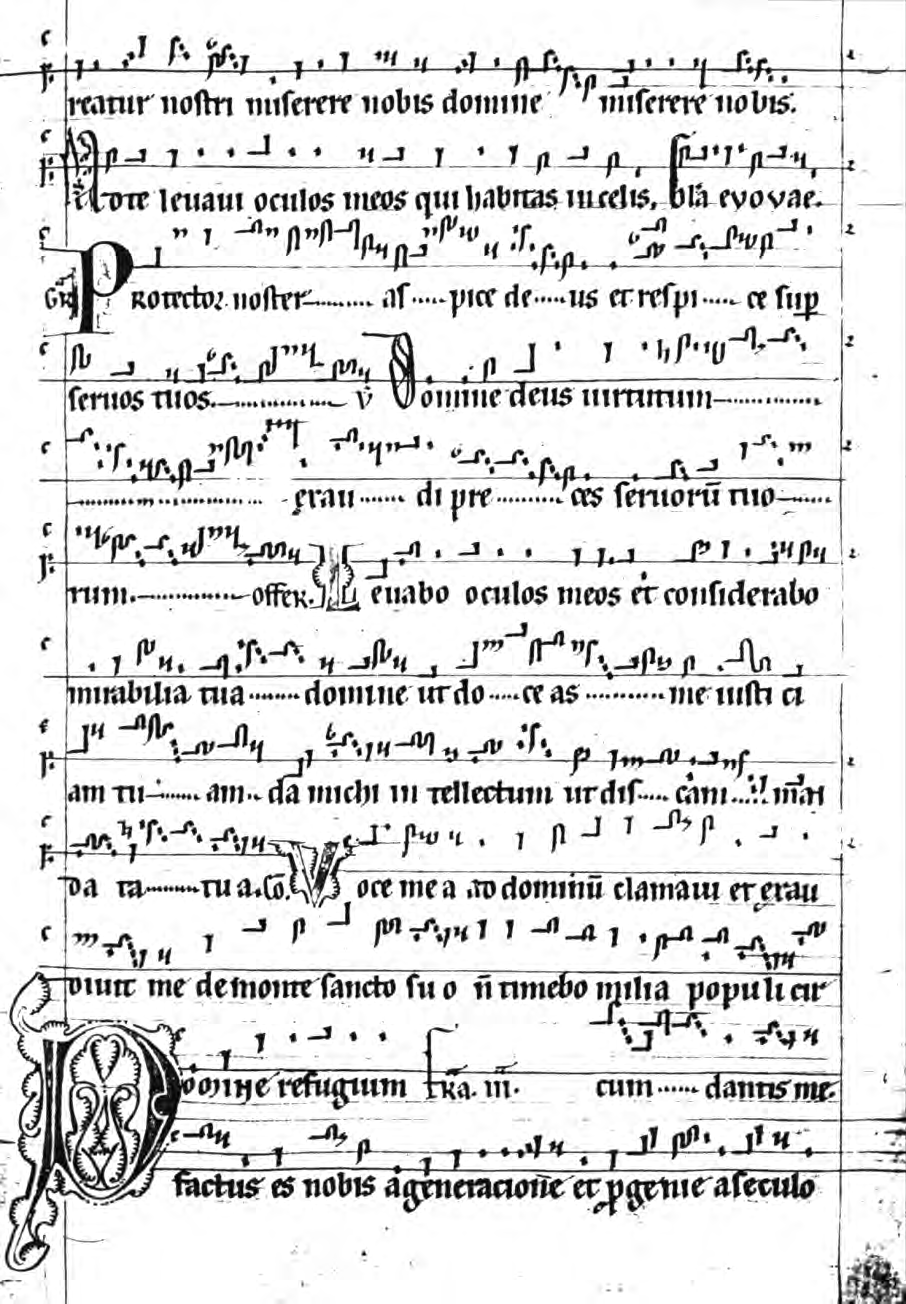 reatur nostri miserere nobis domine miserere nobis.
Ad te levavi oculos meos qui habitas in celis, evovae.
GR Protector noster as pice de us et respi ce sup
servos tuos. v Domine deus virtutum
exau di pre ces servorū tuo
rum. offer. Levabo oculos meos et considerabo
mirabilia tua domine ut do ce as me iusti ci
am tu am da michi in tellectum ut dis cam mā
da ta tu a. Cō. Voce mea ad dominū clamavi et exau
divit me de monte sancto su o n̄ timebo milia populi cir
Domine refugium FRA. III. cum dantis me.
factus es nobis a generatione et p genie a seculo